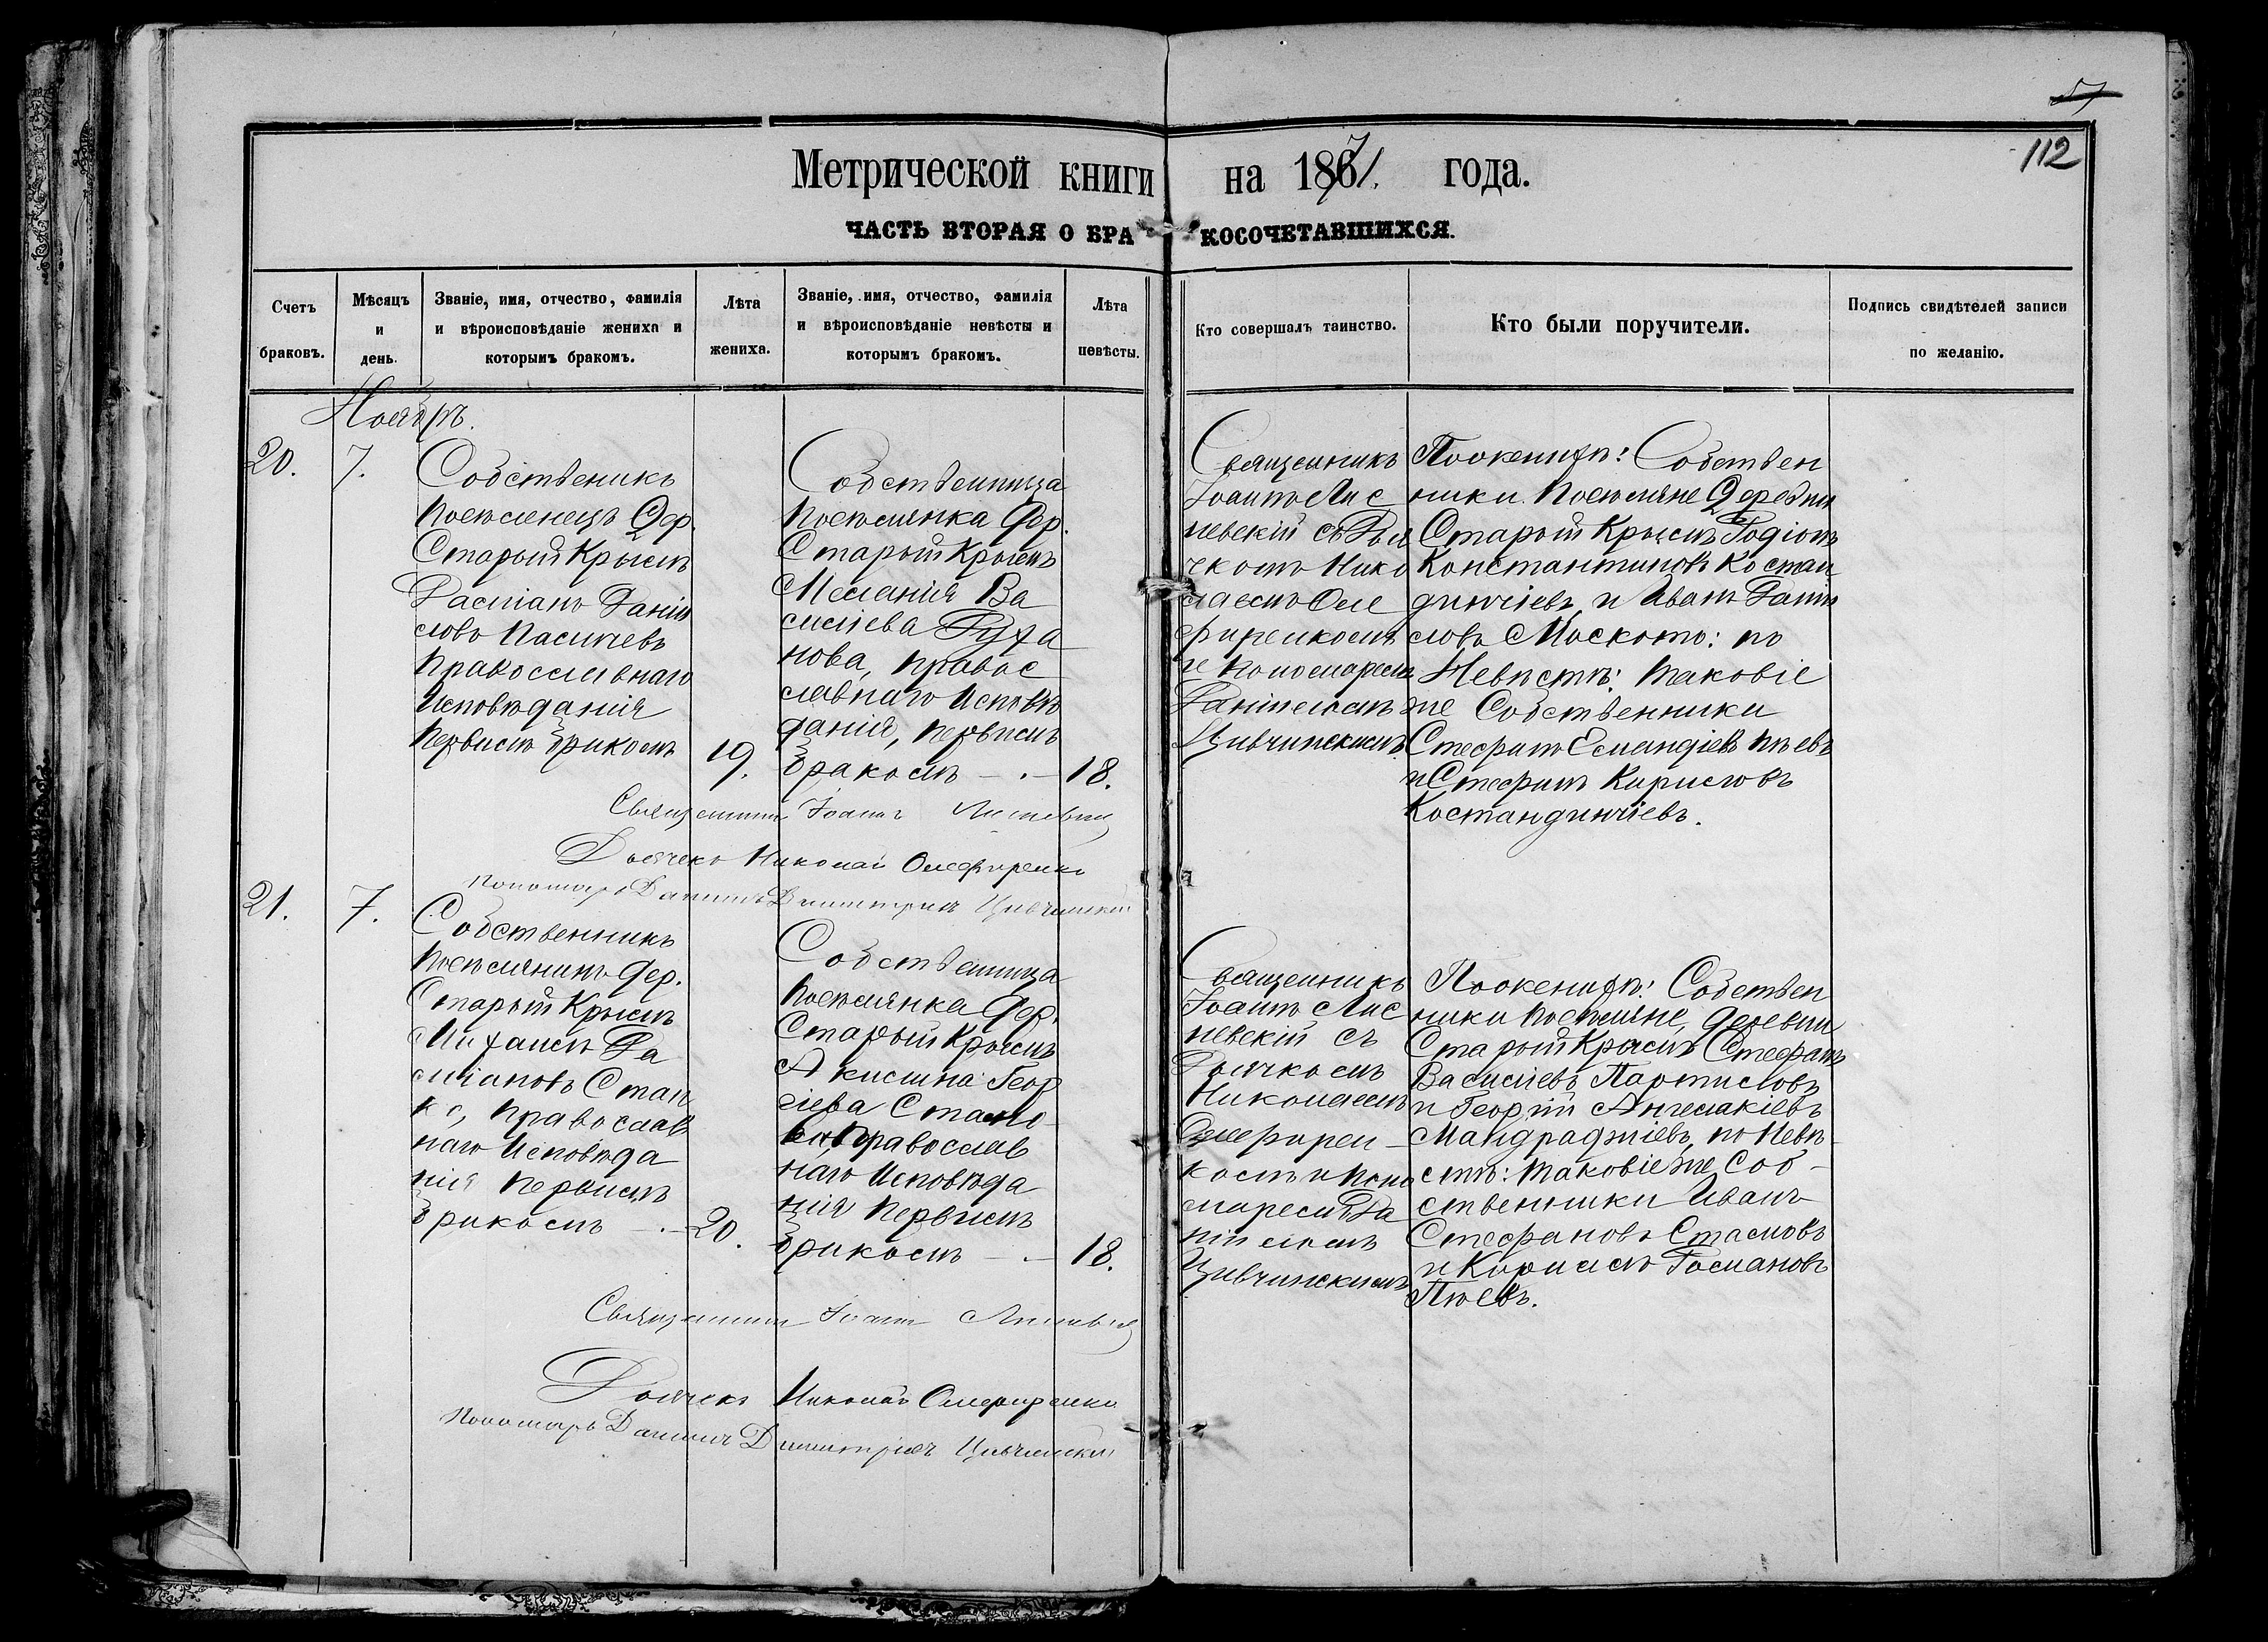 112
Метрической книги на 1871 года.
ЧАСТЬ ВТОРАЯ О БРАКОСОЧЕТАВШИХСЯ.
Счетъ браковъ.
Мѣсяцъ и день.
Званіе, имя, отчество, фамилія и вѣроисповѣданіе жениха и которымъ бракомъ.
Лѣта жениха.
Званіе, имя, отчество, фамилія и вѣроисповѣданіе невѣсты и которымъ бракомъ.
Лѣта невѣсты.
Кто совершалъ таинство.
Кто были поручители.
Подпись свидѣтелей записи по желанію.
Ноябрь.
20.
7.
Собственикъ
поселенецъ Дер.
Старый Крымъ
Даніи
ловъ
православнаго
Исповѣданія
первымъ бракомъ
19.
Собственница
поселянка Дер.
Старый Крымъ
Меланія Ва
силіева
нова, правос
лавнаго Исповѣ
данія, первымъ
бракомъ
18.
Священникъ
Іоаннъ Лис
невскій съ Дья
чкомъ Нико
лаемъ Оле
фиренкомъ
и пономаремъ
Даніиломъ
Цивчинскимъ
По женихѣ: Собствен
ники поселяне Деревни
Старый Крымъ Родіонъ
Константиновъ Костан
динжіевъ, и Иванъ Дании
ловъ Моското: по
Невѣстѣ: таковіе
же Собственники
Стефанъ
и Стефанъ Кириловъ
Костандинжіевъ.
Священникъ Іоаннъ Лисневскій
Дьячекъ Николай Олефиренко
Пономарь Даніилъ Димитріевъ Цивчинскій
21.
7.
Собственникъ
поселянинъ Дер.
Старый Крымъ
Михаилъ Да
міановъ Стам
ко, православ
наго Исповѣда
нія первымъ
бракомъ
20.
Собственница
поселянка Дер.
Старый Крымъ
Акилина Геор
гіева Стамо
ва Православ
наго Исповѣда
нія первымъ
бракомъ
18.
Священникъ
Іоаннъ Лис
невскій съ
Дьячкомъ
Николаемъ
Олефирен
комъ и поно
маремъ Да
ніиломъ
Цивчинскимъ
По женихѣ: Собствен
ники поселяне, деревни
Старый Крымъ Стефанъ
Василіевъ
и Георгій Ангелакіевъ
Мандраджіевъ, по невѣ
стѣ: таковіе же Соб
ственники Иванъ
Стефановъ Стамовъ
и Кирилъ
Пѣевъ.
Священникъ Іоаннъ Лисневскій
Дьячекъ Николай Олефиренко
Пономарь Даніилъ Димитріевъ Цивчинскій